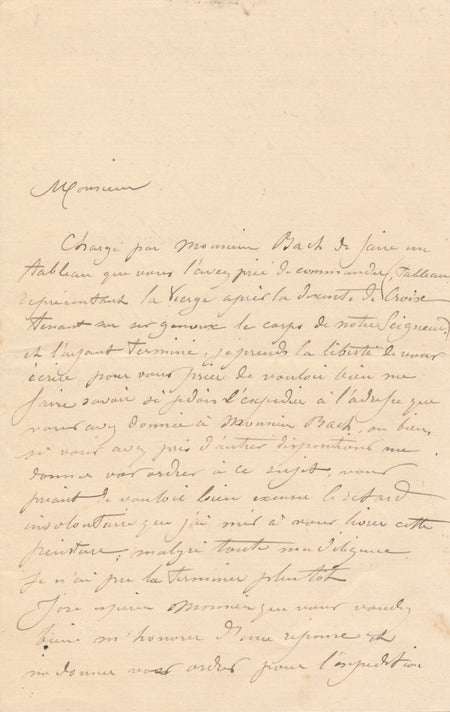 Monsieur
Chargé par Monsieur Bach de faire un
tableau que vous l'avez prié de commander (tableau
représentant la Vierge après la descente de Croix
tenant sur ses genoux le corps de notre Seigneur)
et l'ayant terminé, je prends la liberté de vous
écrire pour vous prier de vouloir bien me
faire savoir si je dois l'expédier à l'adresse que
vous avez donnée à Monsieur Bach, ou bien,
si vous avez pris d'autres dispositions me
donner vos ordres à ce sujet, vous
priant de vouloir bien excuser le retard
involontaire que j'ai mis à vous livrer cette
peinture, malgré toute ma diligence
Je n'ai pu la terminer plustôt
J'ose espérer Monsieur que vous voudrez
bien m'honorer d'une réponse et
me donner vos ordres pour l'expédition